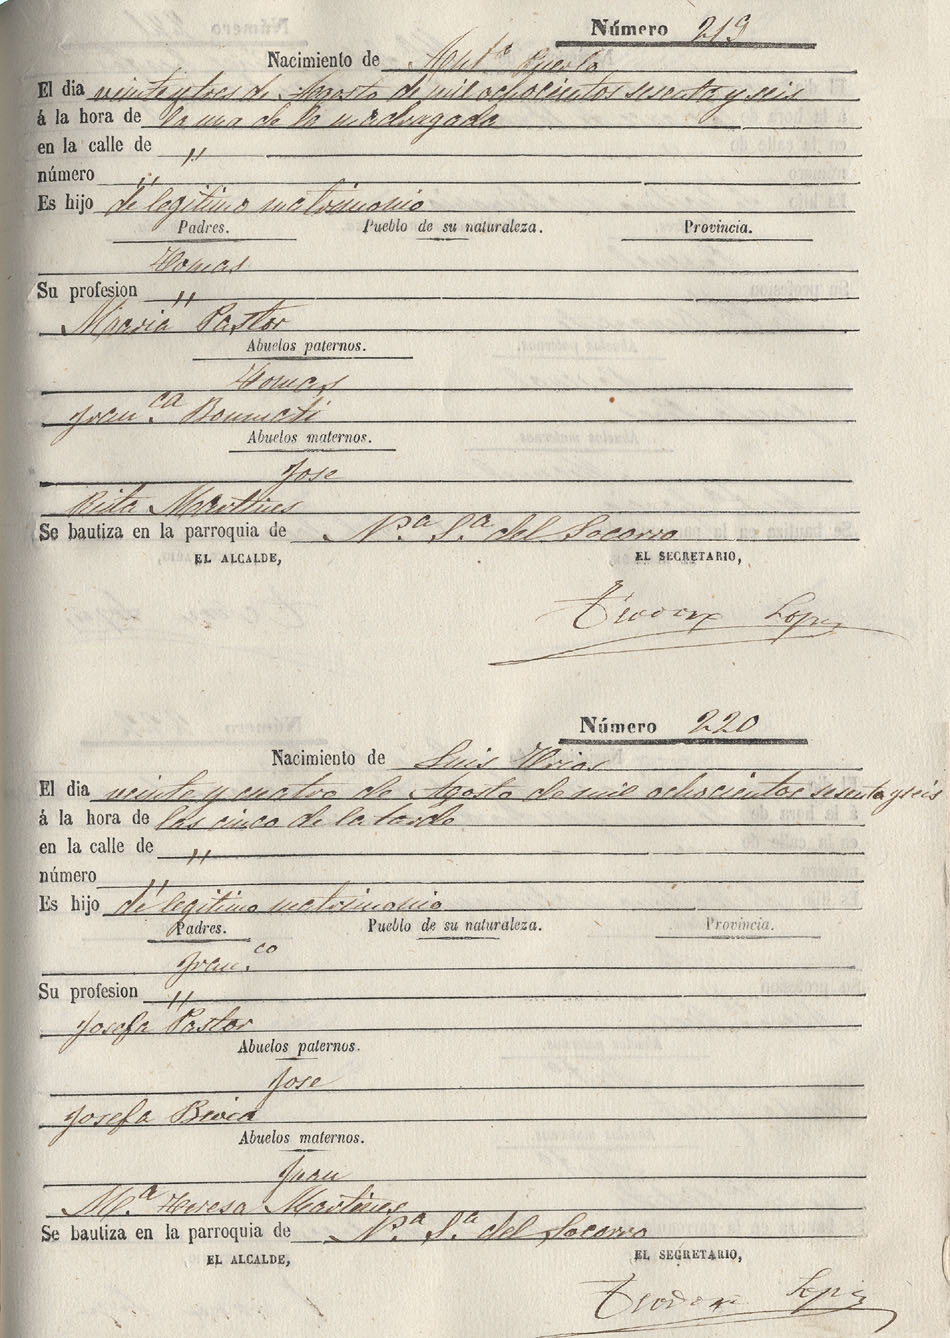 Número 219
Nacimiento de
El dia veinte y tres de Agosto de mil ochocientos sesenta y seis
á la hora de la una de la madrugada
en la calle de "
número "
Es hijo de legitimo matrimonio
Padres. Pueblo de su naturaleza. Provincia.
Tomas
Su profesion "
Maria Pastor
Abuelos paternos.
Tomas
Fran.ca Bonmati
Abuelos maternos.
Jose
Rita Martines
Se bautiza en la parroquia de N.a S.a del Socorro
EL ALCALDE, EL SECRETARIO,
Teodoro Lopez
Número 220
Nacimiento de Luis
El dia veinte y cuatro de Agosto de mil ochocientos sesenta y seis
á la hora de las cinco de la tarde
en la calle de "
número "
Es hijo de legitimo matrimonio
Padres. Pueblo de su naturaleza. Provincia.
Fran.co
Su profesion "
Josefa Pastor
Abuelos paternos.
Jose
Josefa
Abuelos maternos.
Juan
M.a Teresa Martines
Se bautiza en la parroquia de N.a S.a del Socorro
EL ALCALDE, EL SECRETARIO,
Teodoro Lopez